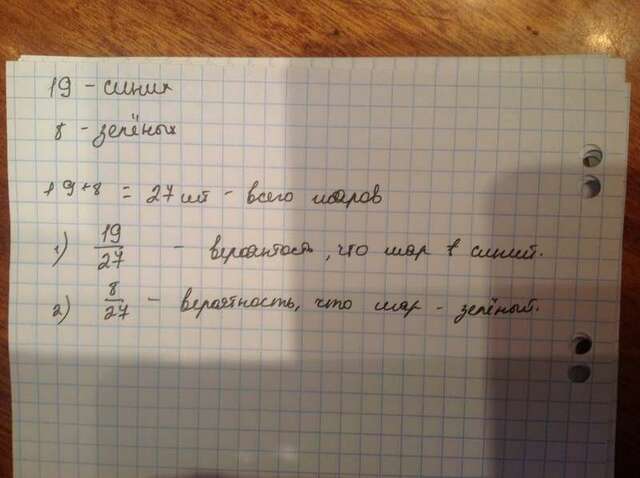 19 - синих
8 - зелёных
19+8 = 27 шт - всего шаров
1) 19/27 - вероянтость, что шар - синий.
2) 8/27 - вероятность, что шар - зелёный.